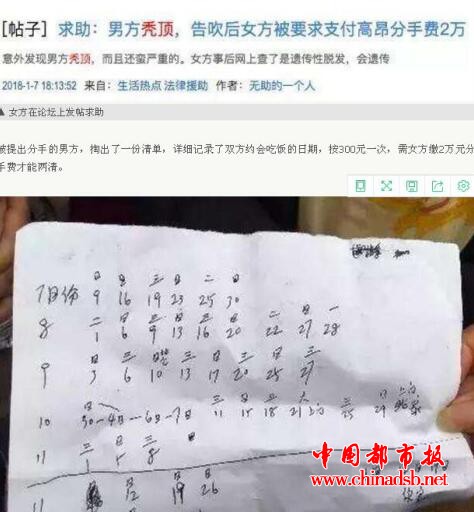 [帖子] 求助：男方秃顶，告吹后女方被要求支付高昂分手费2万
意外发现男方秃顶，而且还蛮严重的。女方事后网上查了是遗传性脱发，会遗传
2018-1-7 18:13:52 来自：生活热点 法律援助 作者：无助的一个人
▲ 女方在论坛上发帖求助
被提出分手的男方，掏出了一份清单，详细记录了双方约会吃饭的日期，按300元一次，需女方缴2万元分
手费才能两清。
日 日 三 日 二 日
7月份 9 16 19 23 25 30
二 日 三 日 三 日 二 日 一
8 1 6 9 13 16 20 22 27 28
日 三 日 三 日 三 日 三
9 3 6 10 13 17 20 25 27
日 三 日 三 日
10 30-4日-6日-7日 11 15 18 21 25 29
三 日 三
11 1 5 8
日 日 日
11 12 19 26
中国都市报
www.chinadsb.net